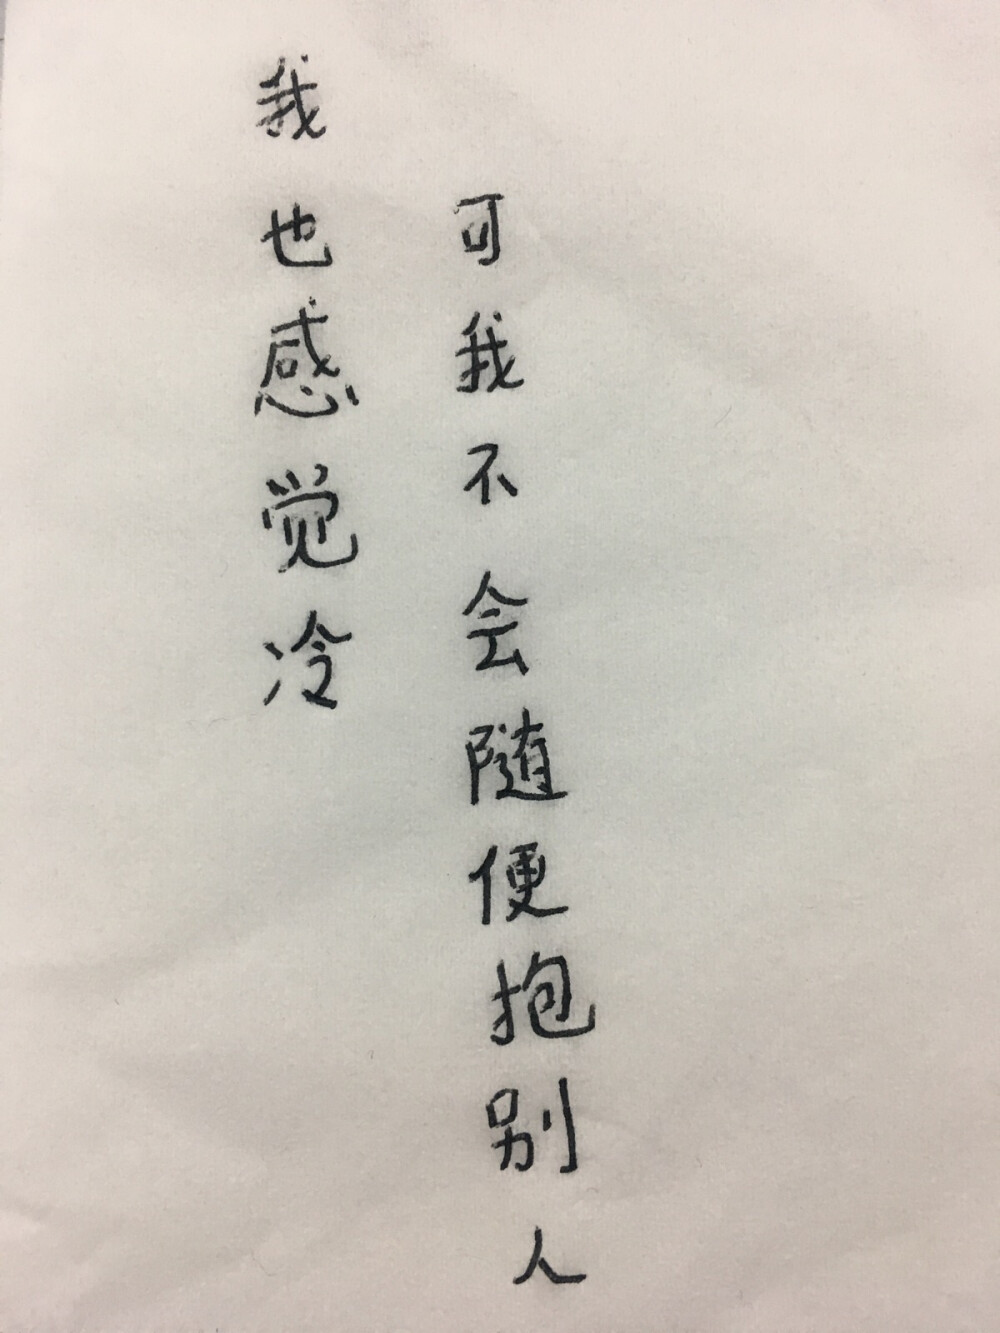 我也感觉冷
可我不会随便抱别人